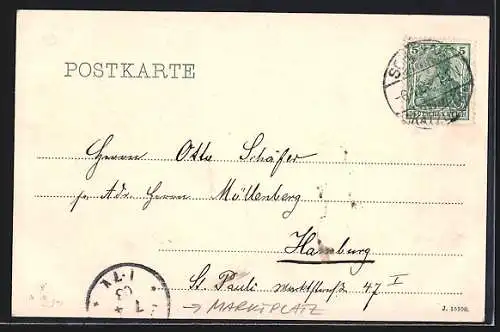 POSTKARTE
5 5
Herrn Otto Schäfer
p. Adr. Herrn Möllenberg
Hamburg
St. Pauli Marktstraße 47 I
→ MARKTPLATZ
J. 15508.